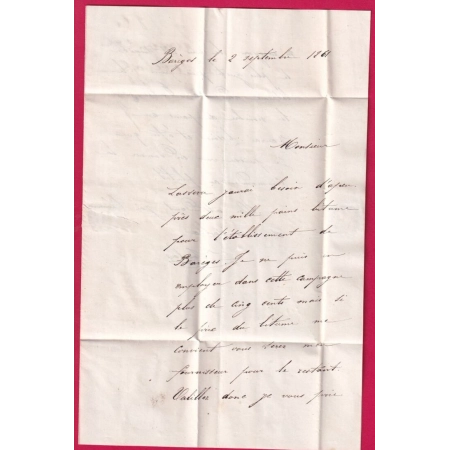 Barèges le 2 septembre 1861
Monsieur
j'aurai besoin d'
deux mille
pour l'établissement de
Barèges. Je ne puis en
employer dans cette campagne
plus de cinq cents mais si
le prix du bitume me
convient vous serez mon
fournisseur pour le restant
Veuillez donc je vous prie